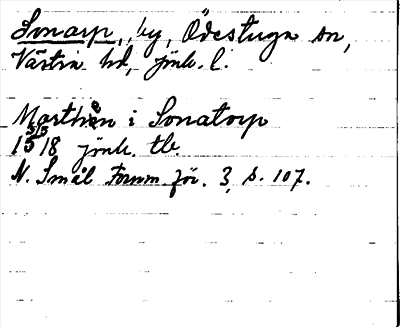 Sonarp, by, Ödestugu sn,
Västra hd, jönk. l.
Marthen i Sonatorp
5/5
1518 jönk. tb.
N. Smål Fornm för. 3, s. 107.